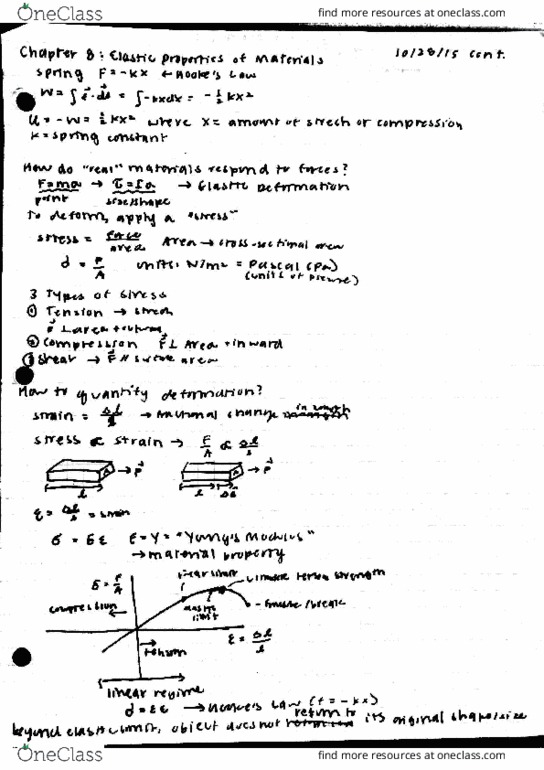 OneClass
find more resources at oneclass.com
Chapter 8: Elastic properties of Materials
10/28/15 cont.
spring F=-kx ← Hooke's Law
W=∫F·ds = ∫-kxdx = -½kx²
U=-W=½kx² where x= amount of strech or compression
k=spring constant
How do "real" materials respond to forces?
F=ma → τ=Iα → Elastic Deformation
point size/shape
To deform, apply a "stress"
stress = force/area Area → cross-sectional area
σ = F/A units: N/m² = Pascal (Pa)
(units of pressure)
3 Types of Stress
① Tension → strech
F ⊥ area + outward
② Compression F⊥ Area + inward
③ Shear → F // surface area
How to quantify deformation?
strain = Δl/l → fractional change in length
stress ∝ strain → F/A ∝ Δl/l
A → F
A → F
l
l Δl
ε = Δl/l = strain
σ = Eε E=Y= "Young's Modulus"
→ material property
σ=F/A
linear limit
ultimate tensile strength
compression
elastic limit
ε = Δl/l
tension
linear regime
σ=Eε → Hooke's Law (F=-kx)
beyond elastic limit, object does not return to its original shape/size
OneClass
find more resources at oneclass.com